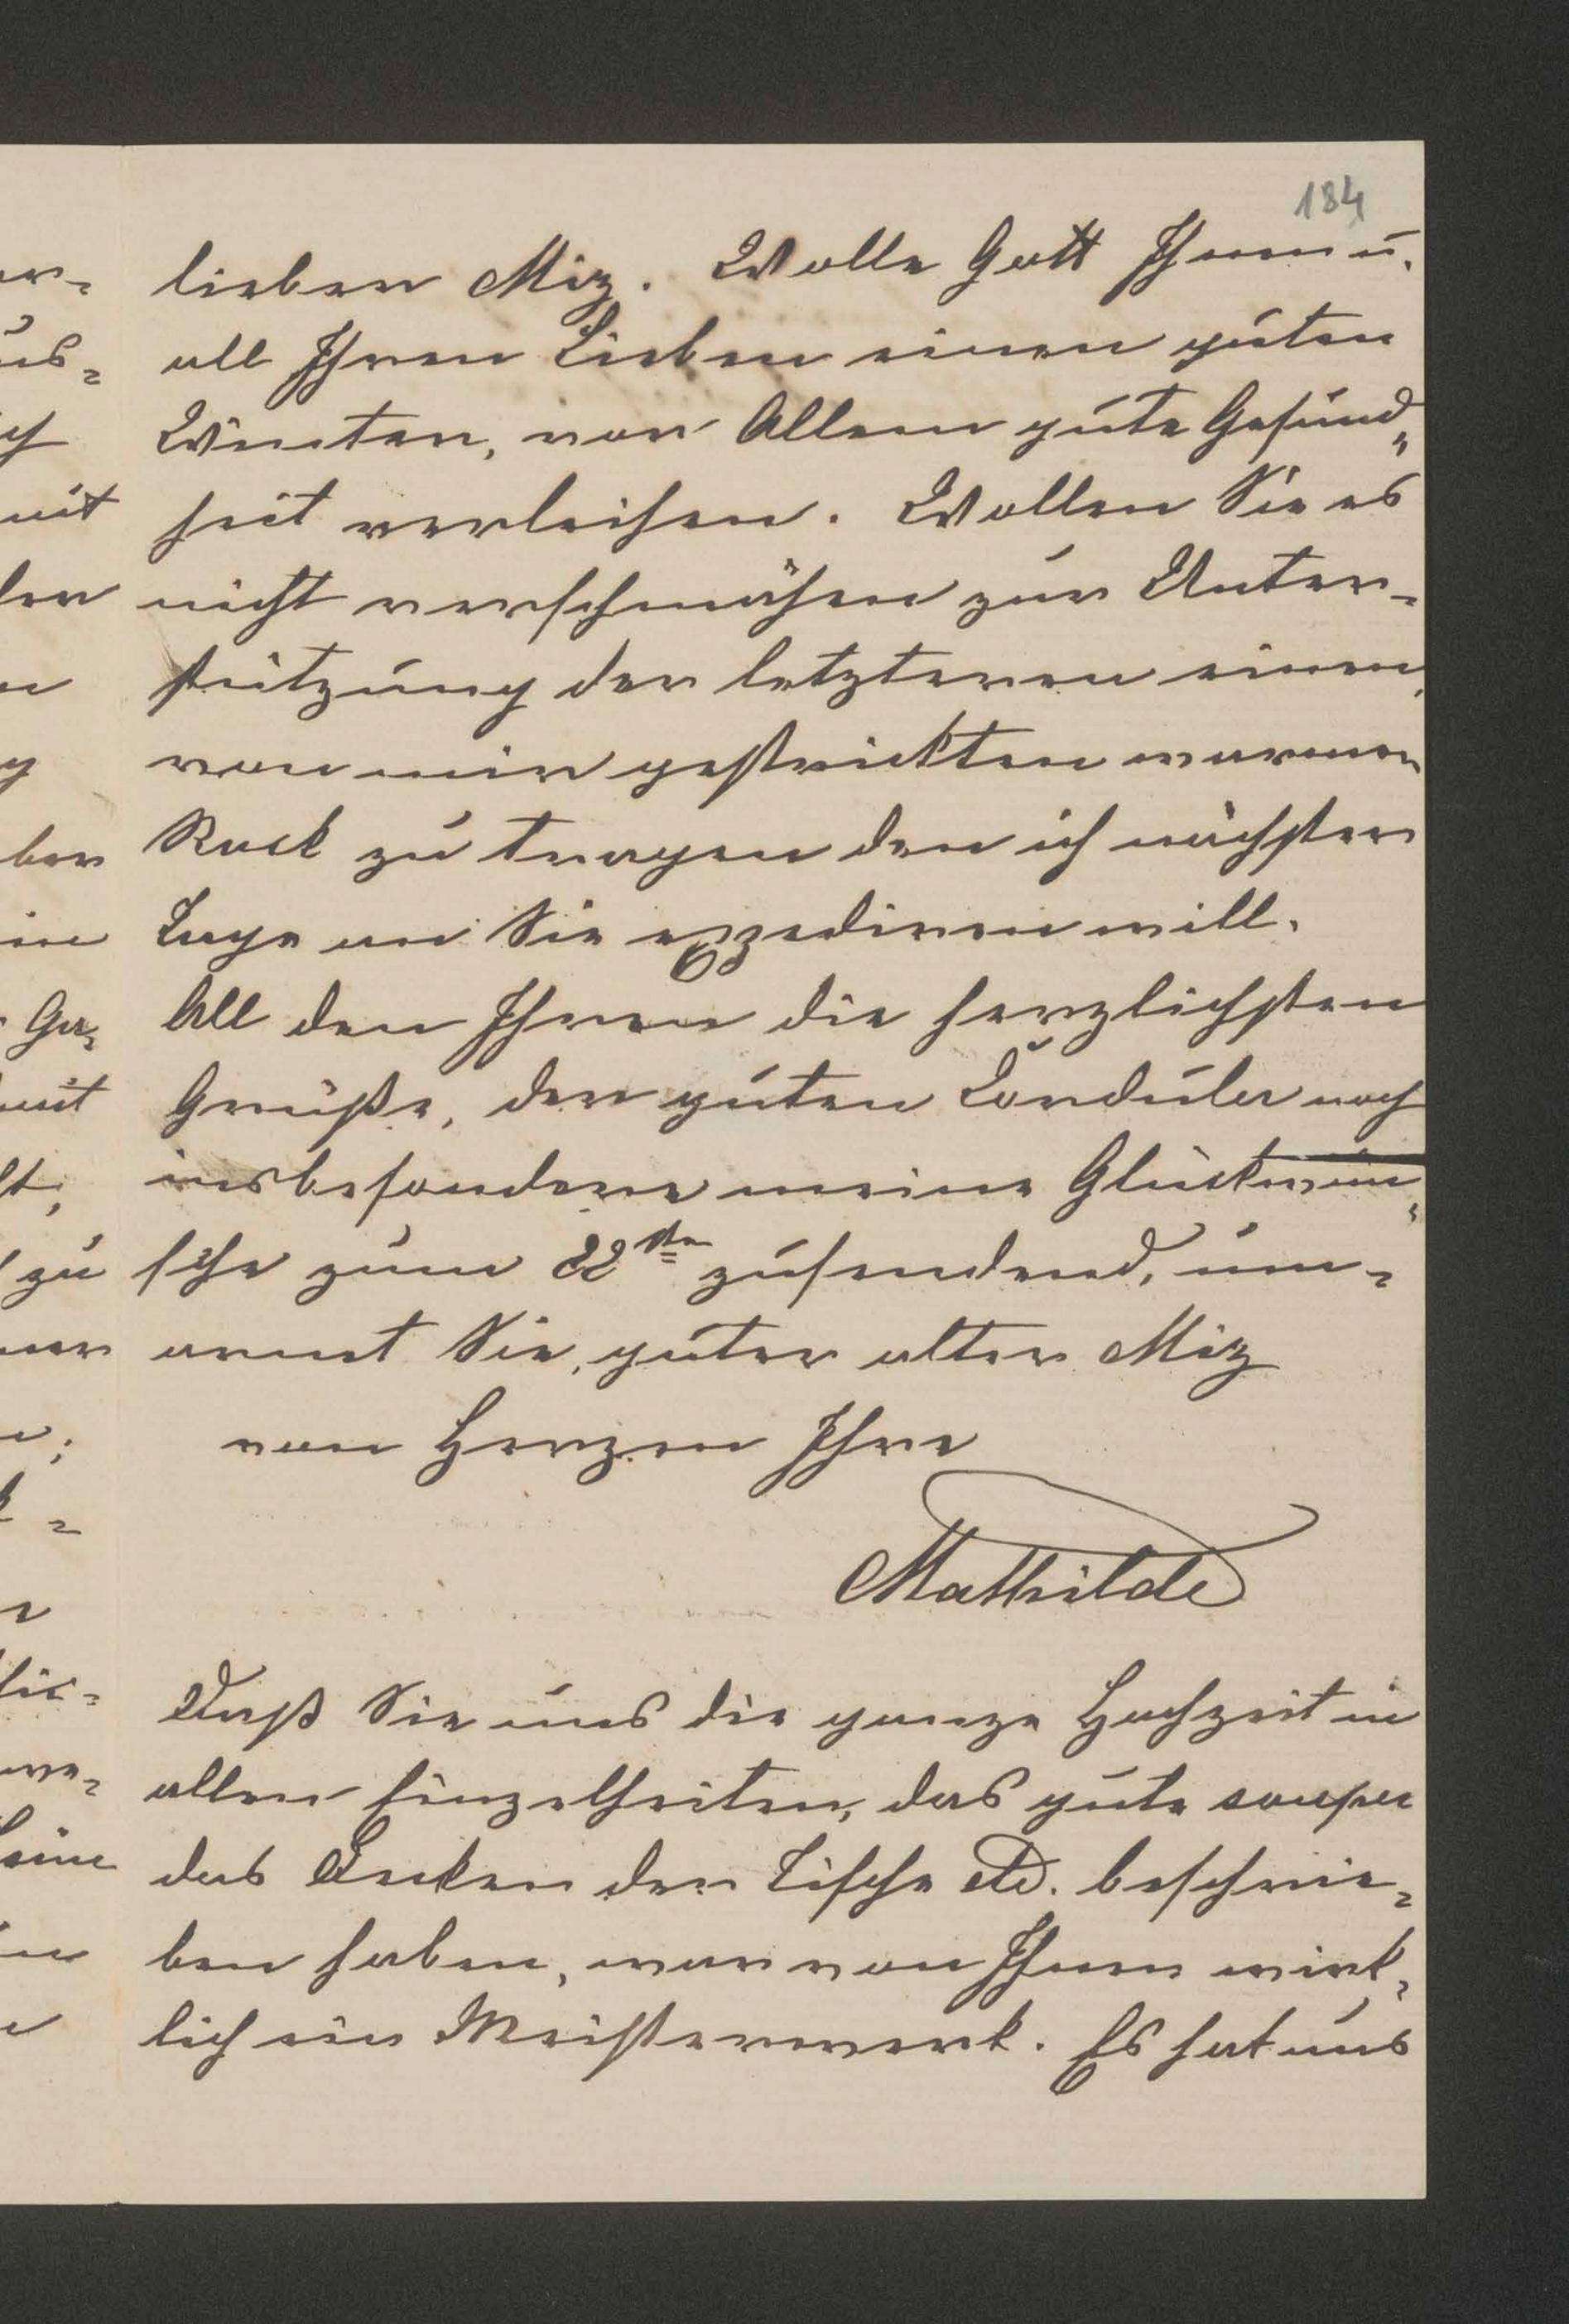 184
lieben Miz. Wolle Gott Ihnen u.
all Ihren Lieben einen guten
Winter, vor Allem gute Gesund„
heit verleihen. Wollen Sie es
nicht verschmähen zur Unter-
stützung der letzteren einen,
von mir gestrickten warmen
Rock zu tragen den ich nächster
Tage an Sie expediren will.
All den Ihren die herzlichsten
Grüße, der guten Cordula noch
insbesondere meine Glückwün„
sche zum 22ten zusendend, um-
armt Sie, guter alter Miz
von Herzen Ihre
Mathilde
Daß Sie uns die ganze Hochzeit in
allen Einzelheiten, das gute souper
das Decken der Tische etc. beschrie-
ben haben, war von Ihnen wirk-
lich ein Meisterwerk. Es hat uns